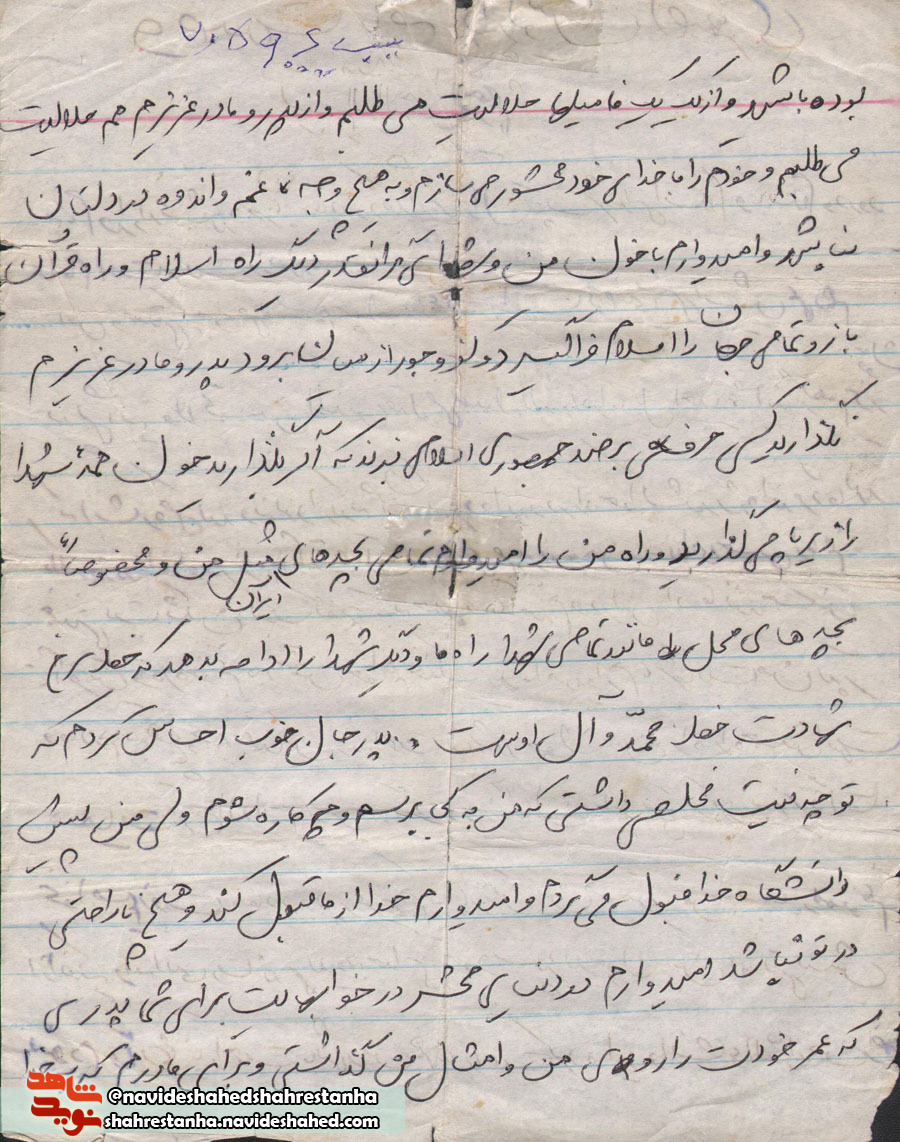 بوده باشد و از یک یک فامیلها حلالیت می طلبم و از پدر و مادر عزیزم هم حلالیت
می طلبم و خودم را با خدای خود محشور می سازم و به هیچ وجه غم و اندوه در دلتان
نباشد و امیدوارم با خون من و راه اسلام و راه قرآن
باز و تمامی جهان را اسلام فراگیرد و جور از میان برود پدر و مادر عزیزم
نگذارید کسی حرفی بر ضد جمهوری اسلامی بزند که اگر بگذارید خون همهٔ شهدا
را زیر پا می گذارید و راه من را امیدوارم تمامی بچه های مثل من و مخصوصاً
ایران
بچه های محل مانند تمامی شهدا راه ما و دیگر شهدا را ادامه بدهد که خط سرخ
شهادت خط محمّد و آل اوست . پدر جان خوب احساس کردم که
تو چه نیت مخلصی داشتی که من به کجا برسم و چکاره شوم ولی من پیش
دانشگاه خدا قبول می گردم و امیدوارم خدا از ما قبول کند و هیچ ناراحتی
در تو نباشد امیدوارم در دنیای محشر در خوابهایت برای شما پدری
که عمر خودت را روی من و امثال من گذاشتی و برای مادرم که
شاهد
نوید
@navideshahedshahrestanha
shahrestanha.navideshahed.com